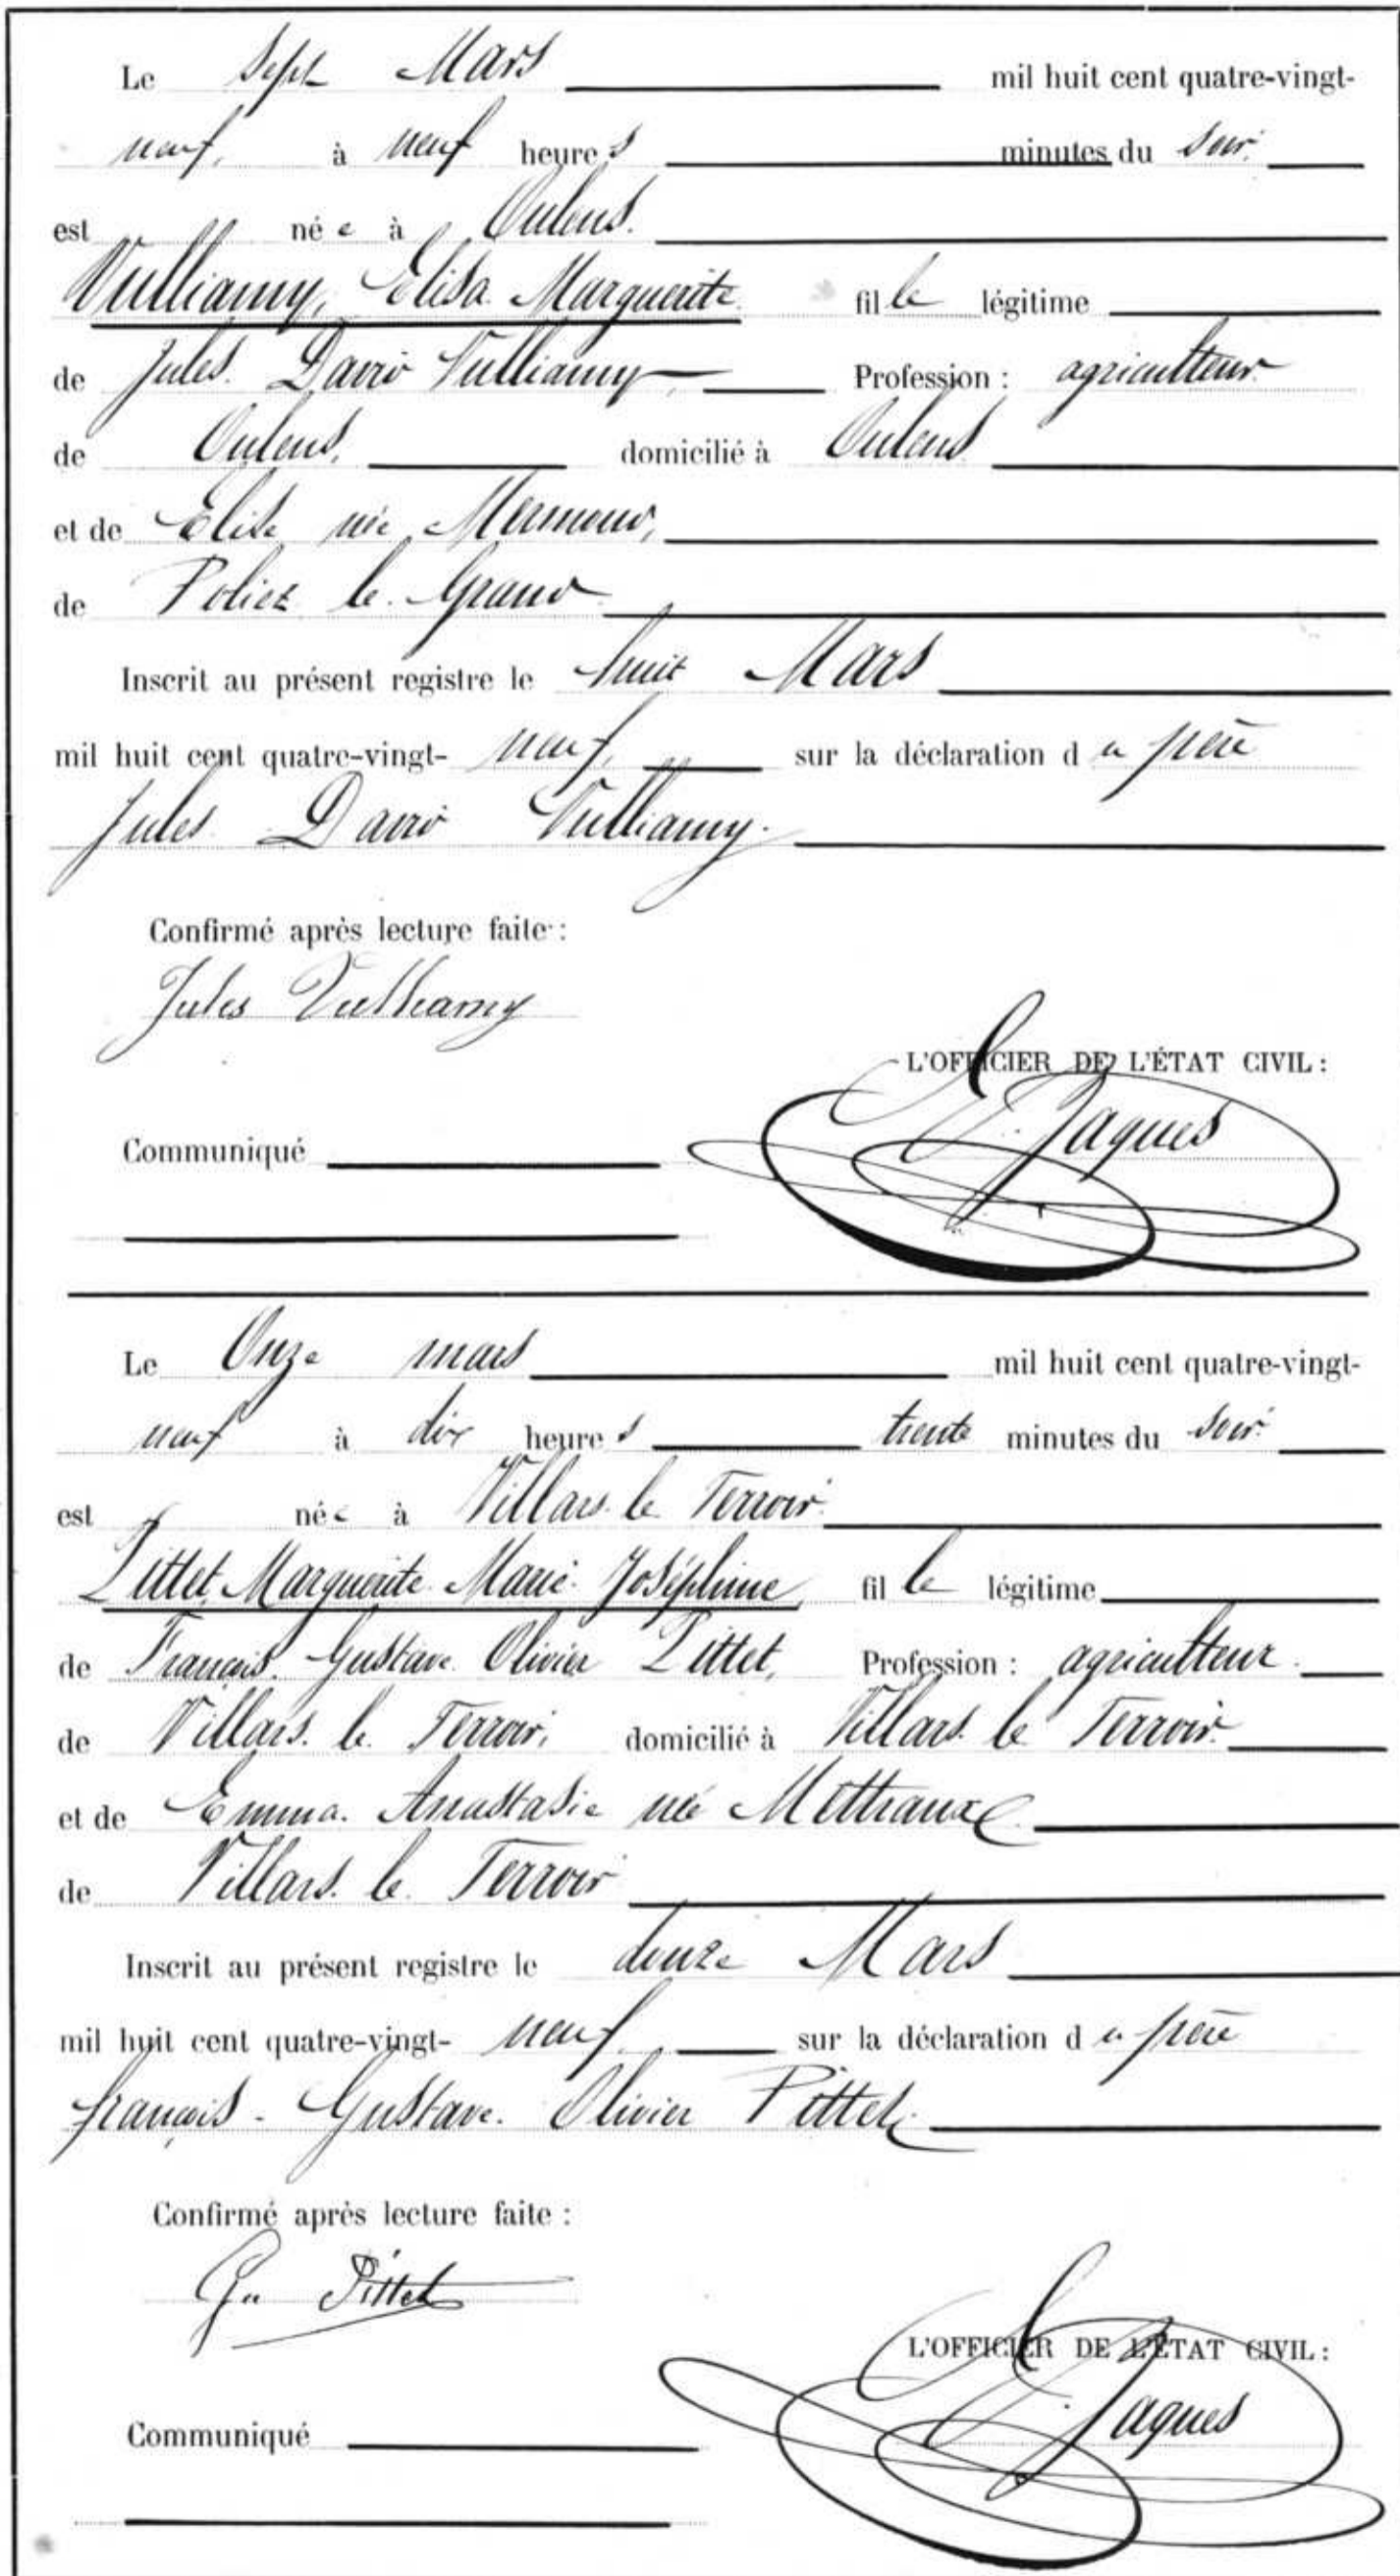 Le Sept Mars mil huit cent quatre-vingt-
neuf, à neuf heures minutes du soir.
est née à Oulens.
Vulliamy, Elisa Marguerite fille légitime
de Jules David Vulliamy, Profession : agriculteur
de Oulens, domicilié à Oulens
et de Elise née Mermoud,
de Poliez le Grand
Inscrit au présent registre le huit Mars
mil huit cent quatre-vingt- neuf, sur la déclaration du père
Jules David Vulliamy.
Confirmé après lecture faite :
Jules Vulliamy
L'OFFICIER DE L'ÉTAT CIVIL :
Jaques
Communiqué
Le Onze mars mil huit cent quatre-vingt-
neuf à dix heures trente minutes du soir.
est née à Villars le Terroir.
Pittet, Marguerite Marie Joséphine, fille légitime
de François Gustave Olivier Pittet, Profession : agriculteur.
de Villars le Terroir, domicilié à Villars le Terroir.
et de Emma Anastasie née Mettraux
de Villars le Terroir
Inscrit au présent registre le douze Mars
mil huit cent quatre-vingt- neuf, sur la déclaration du père
françois Gustave Olivier Pittet.
Confirmé après lecture faite :
Gu Pittet
L'OFFICIER DE L'ÉTAT CIVIL :
Jaques
Communiqué